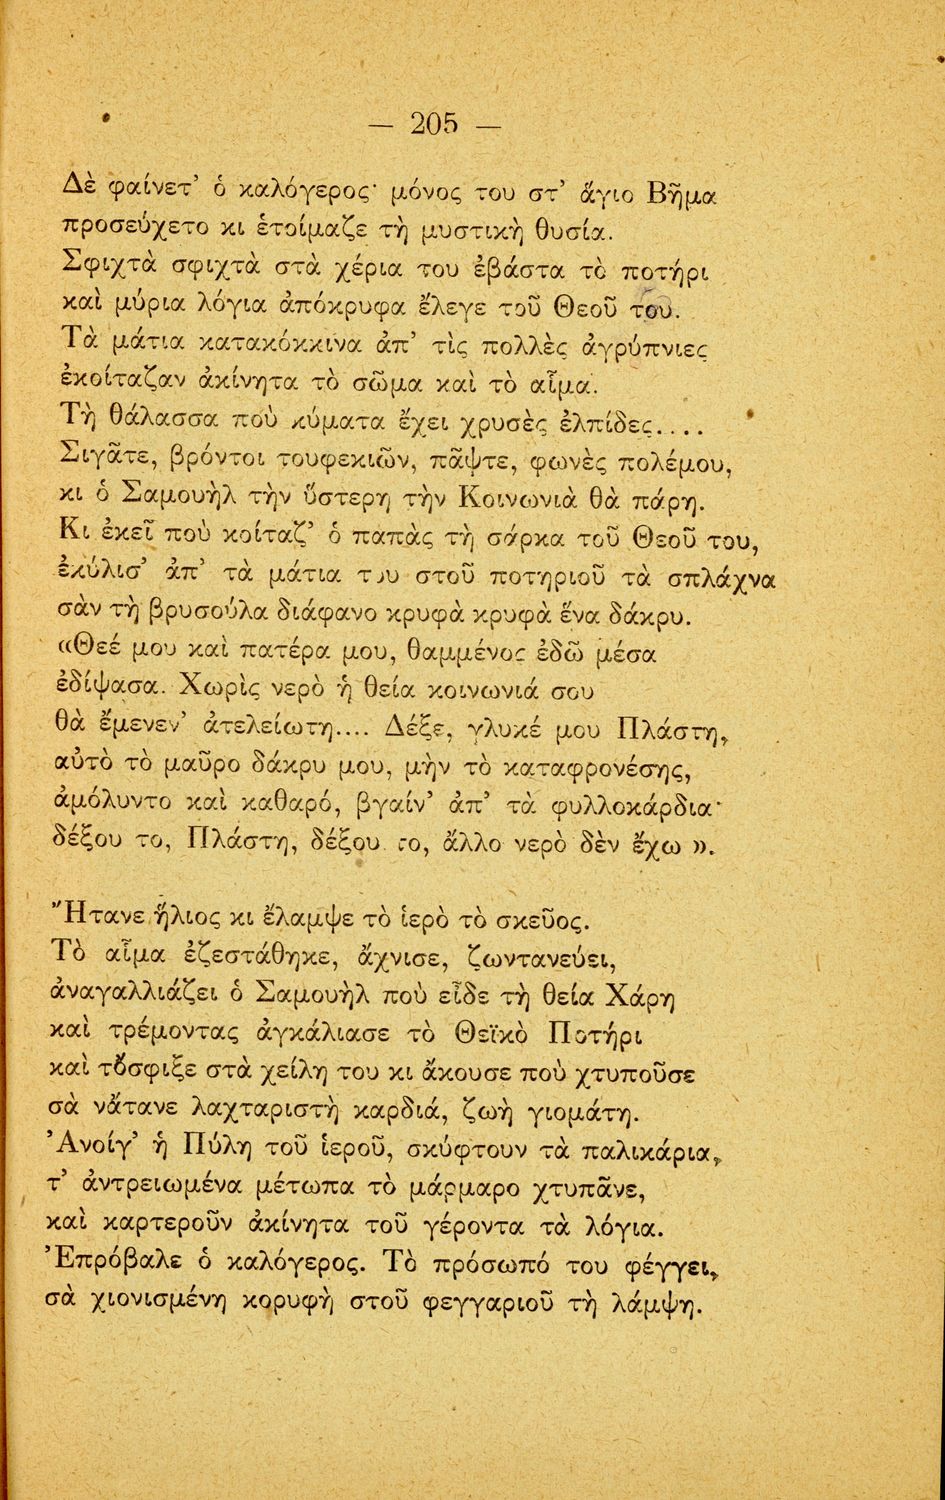 — 205 —
Δὲ φαίνετ’ ὁ καλόγερος· μόνος του στ’ ἅγιο Βῆμα
προσεύχετο κι ἑτοίμαζε τὴ μυστικὴ θυσία.
Σφιχτὰ σφιχτὰ στὰ χέρια του ἐβάστα τὸ ποτήρι
καὶ μύρια λόγια ἀπόκρυφα ἔλεγε τοῦ Θεοῦ του.
Τὰ μάτια κατακόκκινα ἀπ’ τὶς πολλὲς ἀγρύπνιες
ἐκοίταζαν ἀκίνητα τὸ σῶμα καὶ τὸ αἷμα.
Τὴ θάλασσα ποὺ κύματα ἔχει χρυσὲς ἐλπίδες....
Σιγᾶτε, βρόντοι τουφεκιῶν, πᾶψτε, φωνὲς πολέμου,
κι ὁ Σαμουὴλ τὴν ὕστερη τὴν Κοινωνιὰ θὰ πάρη.
Κι ἐκεῖ ποὺ κοίταζ’ ὁ παπὰς τὴ σάρκα τοῦ Θεοῦ του,
ἐκύλισ’ ἀπ’ τὰ μάτια του στοῦ ποτηριοῦ τὰ σπλάχνα
σὰν τὴ βρυσούλα διάφανο κρυφὰ κρυφὰ ἕνα δάκρυ.
«Θεέ μου καὶ πατέρα μου, θαμμένος ἐδῶ μέσα
ἐδίψασα. Χωρὶς νερὸ ἡ θεία κοινωνιά σου
θὰ ἔμενεν’ ἀτελείωτη.... Δέξε, γλυκέ μου Πλάστη,
αὐτὸ τὸ μαῦρο δάκρυ μου, μὴν τὸ καταφρονέσης,
ἀμόλυντο καὶ καθαρό, βγαίν’ ἀπ’ τὰ φυλλοκάρδια·
δέξου το, Πλάστη, δέξου το, ἄλλο νερὸ δὲν ἔχω ».
Ἤτανε ἥλιος κι ἔλαμψε τὸ ἱερὸ τὸ σκεῦος.
Τὸ αἷμα ἐζεστάθηκε, ἄχνισε, ζωντανεύει,
ἀναγαλλιάζει ὁ Σαμουὴλ ποὺ εἶδε τὴ θεία Χάρη
καὶ τρέμοντας ἀγκάλιασε τὸ Θεϊκὸ Ποτήρι
καὶ τὄσφιξε στὰ χείλη του κι ἄκουσε ποὺ χτυποῦσε
σὰ νἄτανε λαχταριστὴ καρδιά, ζωὴ γιομάτη.
Ἀνοίγ’ ἡ Πύλη τοῦ ἱεροῦ, σκύφτουν τὰ παλικάρια,
τ’ ἀντρειωμένα μέτωπα τὸ μάρμαρο χτυπᾶνε,
καὶ καρτεροῦν ἀκίνητα τοῦ γέροντα τὰ λόγια.
Ἐπρόβαλε ὁ καλόγερος. Τὸ πρόσωπό του φέγγει,
σὰ χιονισμένη κορυφὴ στοῦ φεγγαριοῦ τὴ λάμψη.